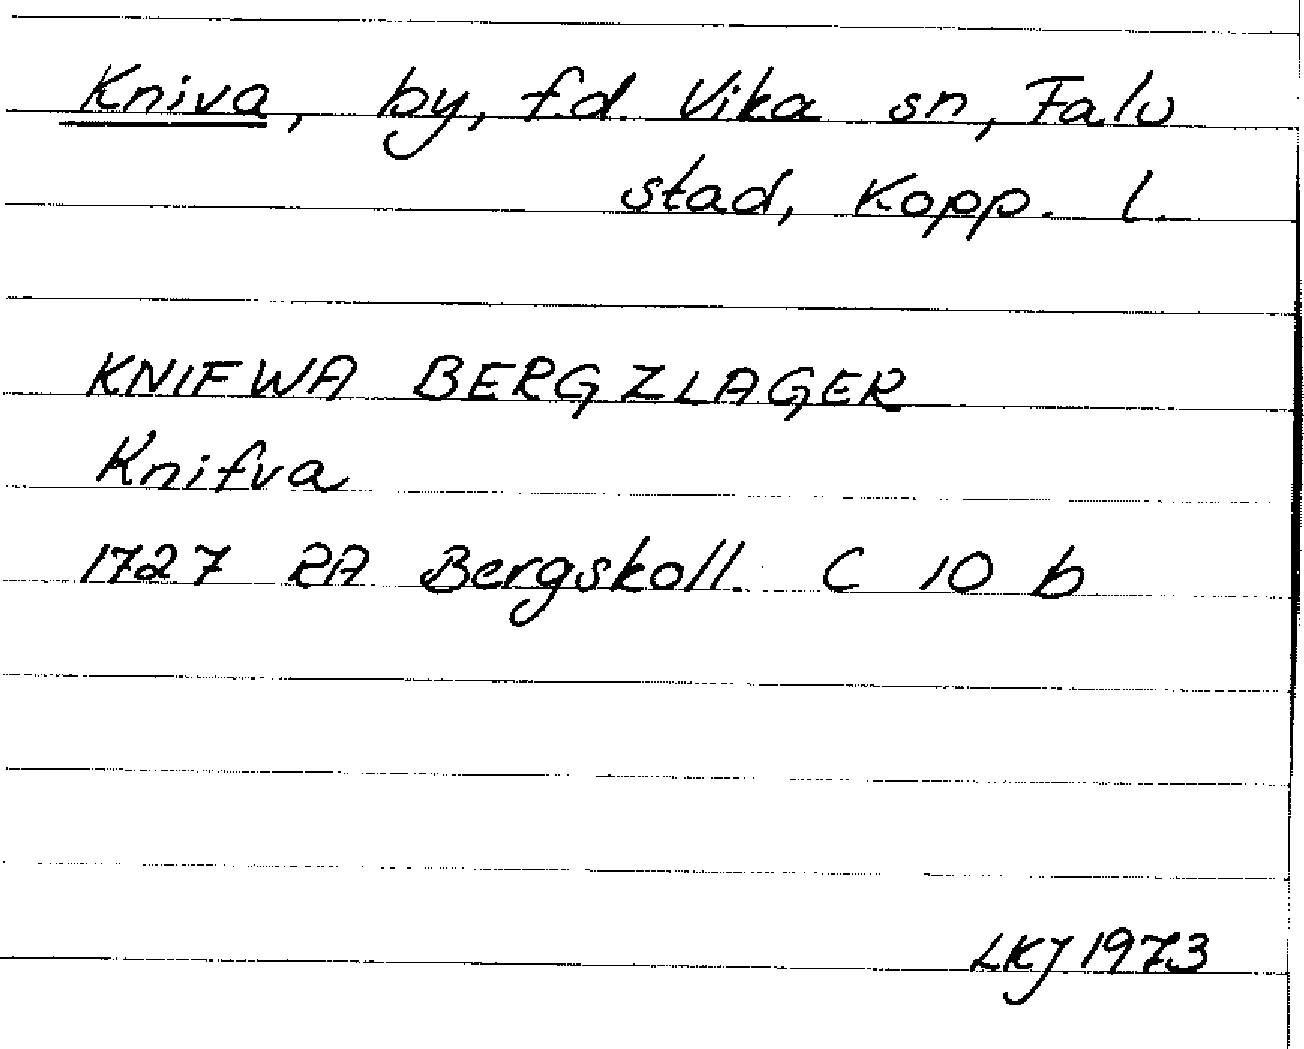 Kniva, by, f.d. Vika sn, Falu
stad, Kopp. l.
KNIFWA BERGZLAGER
Knifva
1727 RA Bergskoll. C 10 b
LKJ 1973